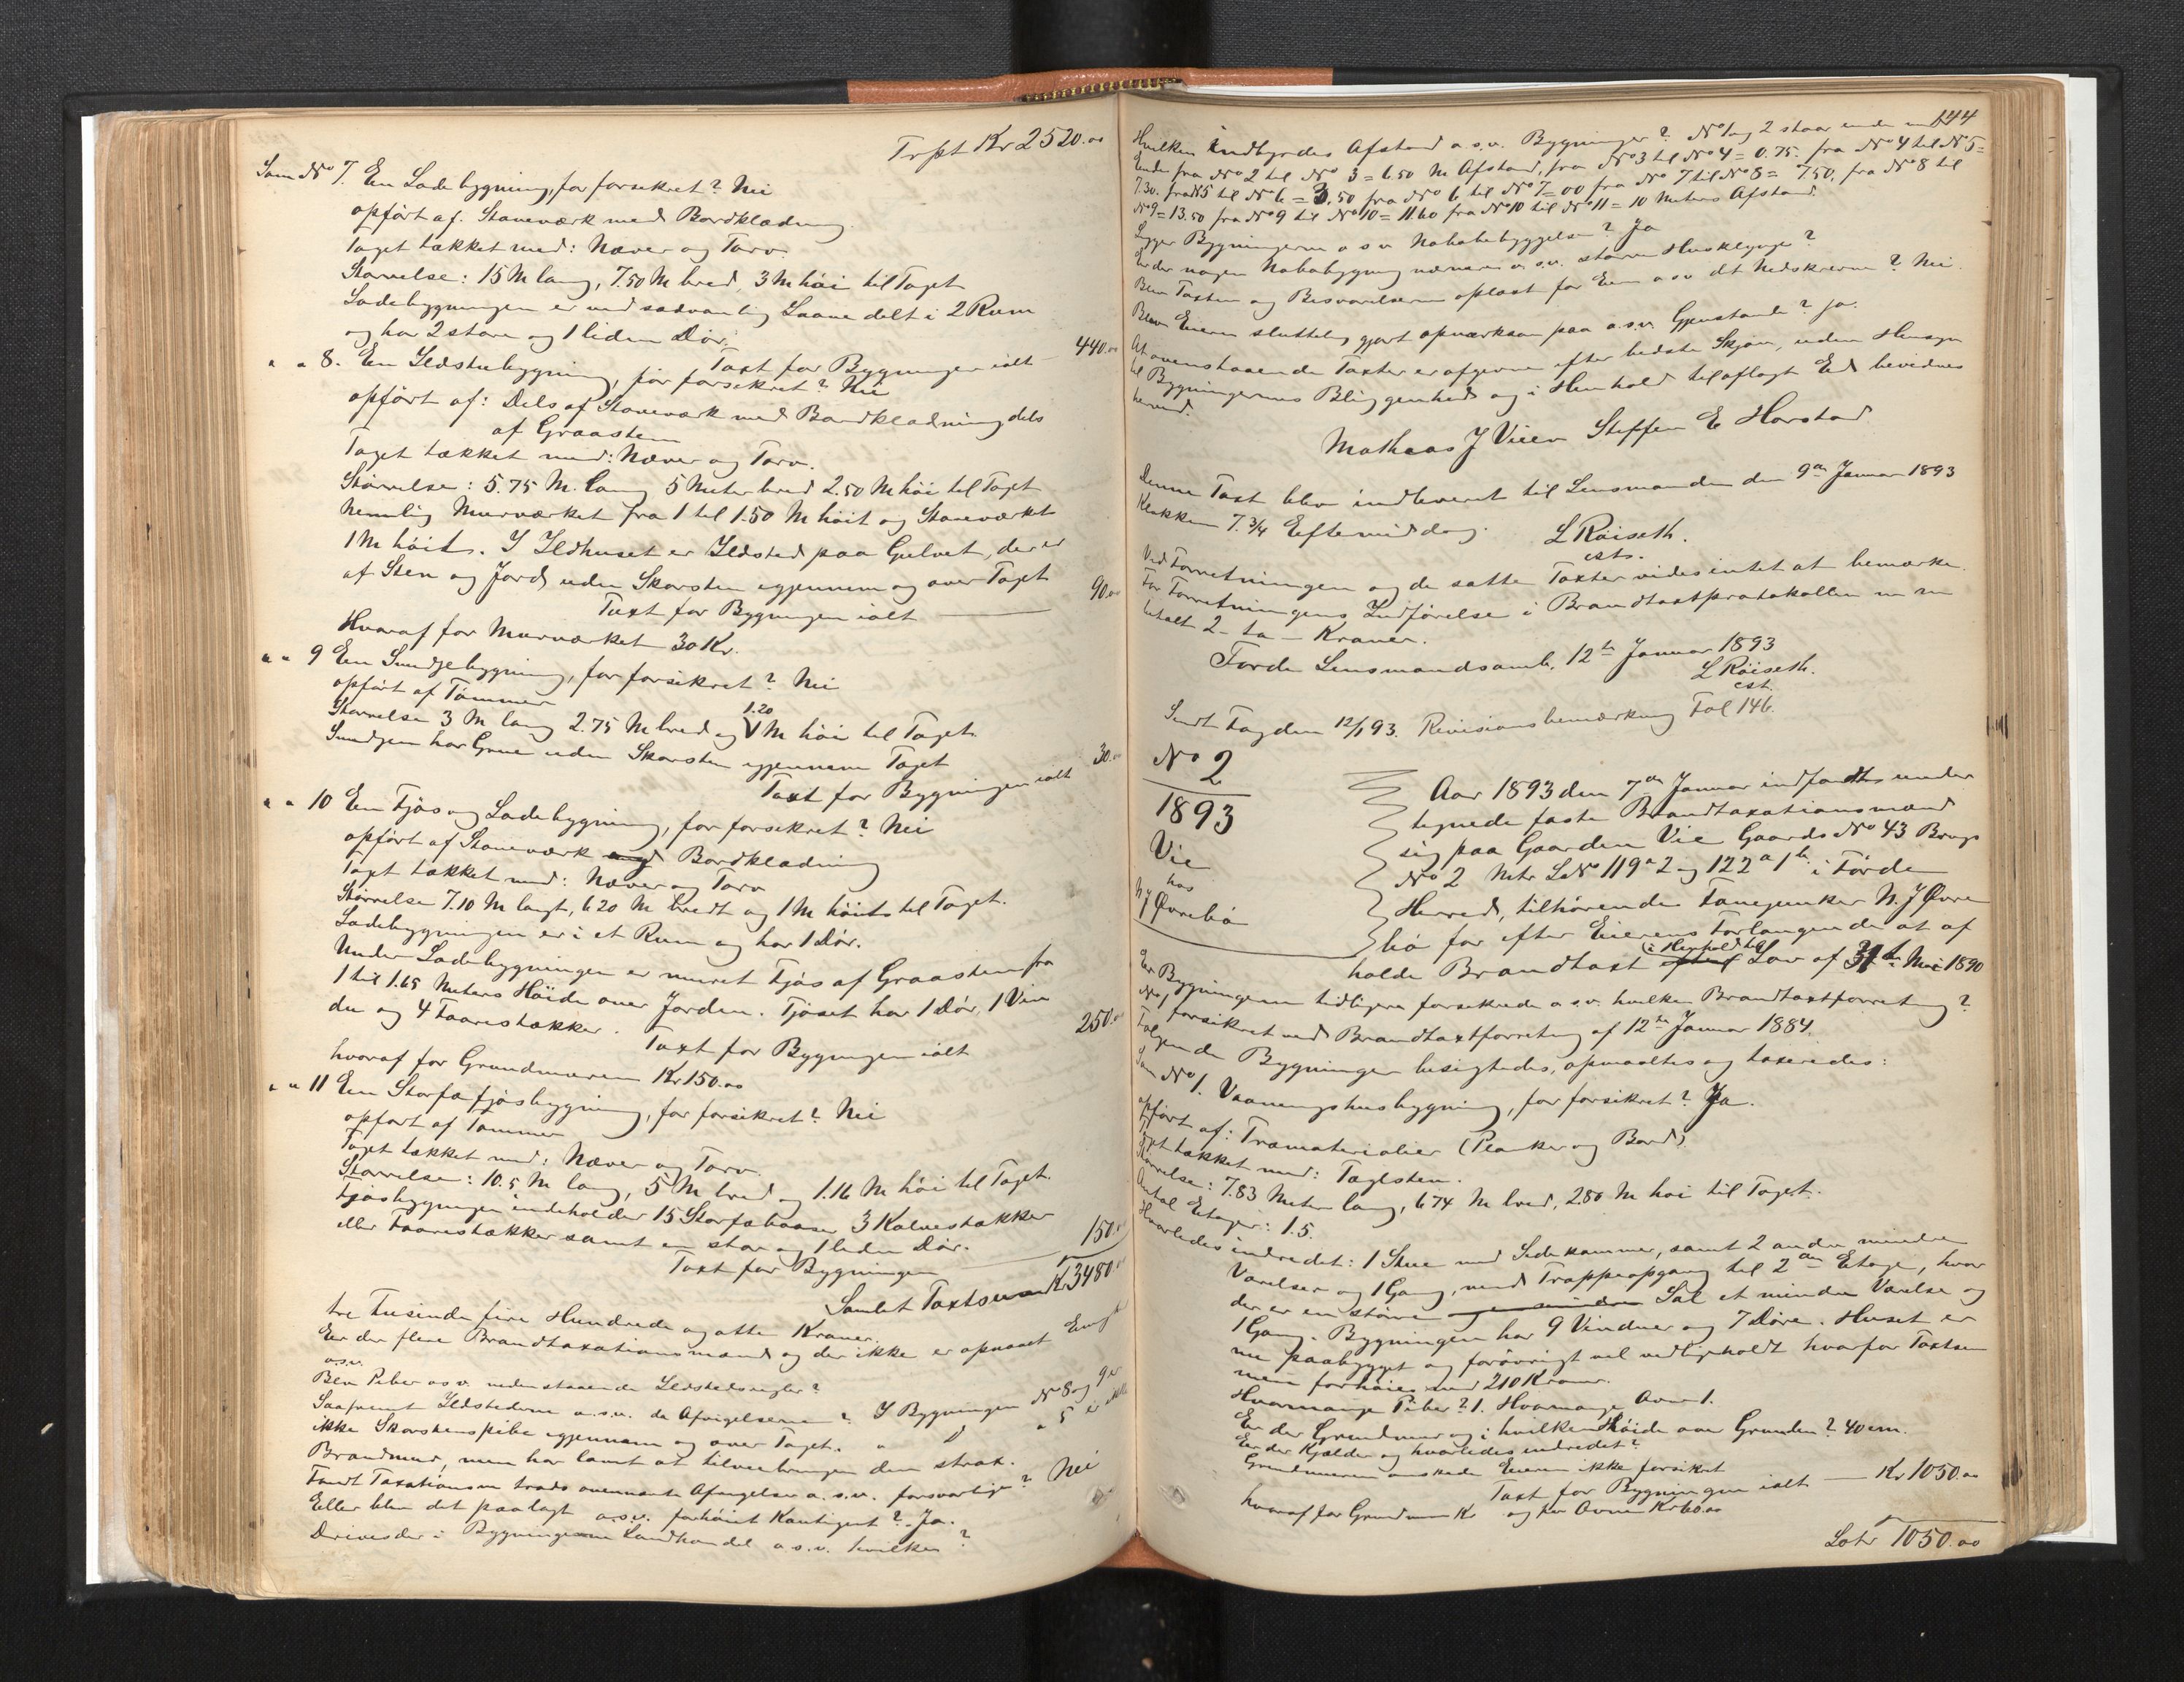 Trpt Kr 2520.00
Som No 7. En Ladebygning, før forsikret? Nei
opført af Stavværk med Bordklædning.
Taget tækket med: Næver og Torv.
Størrelse: 15 M lang, 7.50 M bred, 3 M høi til Taget
Ladebygningen er med sædvanlig Laave delt i 2 Rum
og har 2 store og 1 liden Dør.
Taxt for Bygningen ialt 440.00
" " 8. En Ildstubygning, før forsikret? Nei
opført af: Dels af Stavværk med Bordklædning dels
af Graasten
Taget tækket med: Næver og Torv.
Størrelse: 5.75 M. lang 5 Meter bred 2.50 M høi til Taget
nemlig Murværket fra 1 til 1.50 M høit og Stavværket
1 M høit. I Ildhuset er Ildsted paa Gulvet, der er
af Sten og Jord uden Skorsten igjennem og over Taget
Taxt for Bygningen ialt 90.00
Hvoraf for Murværket 30 Kr.
" " 9 En Smidjebygning, før forsikret? Nei
opført af Tømmer
Størrelse 3 M lang 2.75 M bred og 1.20 M høi til Taget.
Smidjen har Grue uden Skorsten igjennem Taget
Taxt for Bygningen ialt 30.00
" " 10 En Fjøs og Ladebygning, før forsikret? Nei
opført af Stavværk Bordklædning
Taget tækket med: Næver og Torv
Størrelse 7.10 M langt, 6.20 M bredt og 1 M høit til Taget.
Ladebygningen er i et Rum og har 1 Dør.
Under Ladebygningen er muret Fjøs af Graasten fra
1 til 1.65 Meters Høide over Jorden. Fjøset har 1 Dør, 1 Vin
du og 4 Faarestækker. Taxt for Bygningen ialt 250.00
hvoraf for Grundmuren Kr 150.00
" " 11 En Storfæfjøsbygning, før forsikret? Nei
opført af Tømmer
Taget tækket med: Næver og Torv.
Størrelse: 10.5 M lang, 5 M bred og 1.16 M høi til Taget.
Fjøsbygningen indeholder 15 Storfæbaase, 3 Kalvestækker
eller Faarestækker samt en stor og 1 liden Dør.
Taxt for Bygningen 150.00
Samlet Taxtsum Kr 3480.00
tre Tusinde fire Hundrede og otte Kroner.
Er der flere Brandtaxationsmænd og der ikke er opnaaet Enighed
o.s.v.
Blev Piber o s v. nedenstaaende Ildstedsregler?
Saafremt Ildstederne o.s.v. de Afvigelserne? I Bygningen No 8 og 9 er
ikke Skorstenspibe igjennem og over Taget. " D " 5 er ikke
Brandmur, men har lovet at tilveiebringe den strax.
Fandt Taxationsm trods ovennævnte Afvigelser o.s.v. forsvarlige? Nei
Eller blev det paalagt o.s.v. forhøiet Kontigent? Ja.
Drives der i Bygningerne Landhandel o.s.v. hvilken?
144
Hvilken indbyrdes Afstand o.s.v. Bygninger? No 1 og 2 staar ende mod
Ende fra No 2 til No 3 = 6.50 M Afstand, fra No 3 til No 4 = 0.75. fra No 4 til No 5 =
7.30. fra No 5 til No 6 = 3.50 fra No 6 til No 7 = 00 fra No 7 til No 8 = 7.50, fra No 8 til
No 9 = 13.50 fra No 9 til No 10 = 11.60 fra No 10 til No 11 = 10 Meters Afstand.
Ligger Bygningerne o s v Nabobebyggelse? Ja
Er der nogen Nabobygning nærmere o.s.v. større Husklynge?
Blev Taxten og Besvarelserne oplæst for Eier o s v det Nedskrevne? Nei.
Blev Eieren sluttelig gjort opmærksom paa o.s.v. Gjenstande? Ja.
At ovenstaaende Taxter er afgivne efter bedste Skjøn, uden Hensyn
til Bygningernes Beliggenhed og i Henhold til aflagt Ed bevidnes
herved.
Mathias J Vieen Steffen E Horstad
Denne Taxt blev indleveret til Lensmanden den 9de Januar 1893
Klokken 7.3/4 Eftermiddag. L Røiseth.
cst.
Ved Forretningen og de satte Taxter vides intet at bemærke.
For Forretningens Indførelse i Brandtaxtprotokollen m m
betalt 2 - to - Kroner.
Førde Lensmandsomb. 12te Januar 1893
L Røiseth.
cst.
Sendt Fogden 12/1 93. Revisionsbemærkning Fol 146.
No 2
1893
Vie
hos
N J Øvrebø
Aar 1893 den 7de Januar indfandt under
tegnede faste Brandtaxationsmænd
sig paa Gaarden Vie Gaards No 43 Brugs
No 2 Matr L No 119a2 og 122a1b i Førde
Herred, tilhørende Fanejunker N. J Øvre
bø for efter Eierens Forlangende at af
holde Brandtaxt i Henhold til Lov af 31te Mai 1890
Er Bygningerne tidligere forsikrede o s v. hvilken Brandtaxtforretning?
No 1 forsikret ved Brandtaxtforretning af 12te Januar 1884.
Følgende Bygninger besigtedes, opmaaltes og taxeredes:
Som No 1. Vaaningshusbygning, før forsikret? Ja.
opført af: Træmaterialier (Planker og Bord).
Taget tækket med: Taglsten.
Størrelse: 7.83 Meter lang, 6.74 M bred, 2.80 M høi til Taget.
Antal Etager: 1.5.
Hvorledes indredet: 1 Stue med Sidekammer, samt 2 andre mindre
Værelser og 1 Gang, med Trappeopgang til 2den Etage, hvor
der er en større Sal et mindre Værelse og
1 Gang. Bygningen har 9 Vinduer og 7 Døre. Huset er
nu paabygget og forøvrigt vel vedligeholdt hvorfor Taxtsum
men forhøies med 210 Kroner.
Hvormange Piber? 1. Hvormange Ovne 1.
Er der Grundmur og i hvilken Høide over Grunden? 40 cm.
Er der Kjælder og hvorledes indredet?
Grundmuren ønskede Eieren ikke forsikret
Taxt for Bygningen ialt Kr 1050.00
hvoraf for Grundmur Kr og for Ovne Kr 60.00
Latr 1050.00